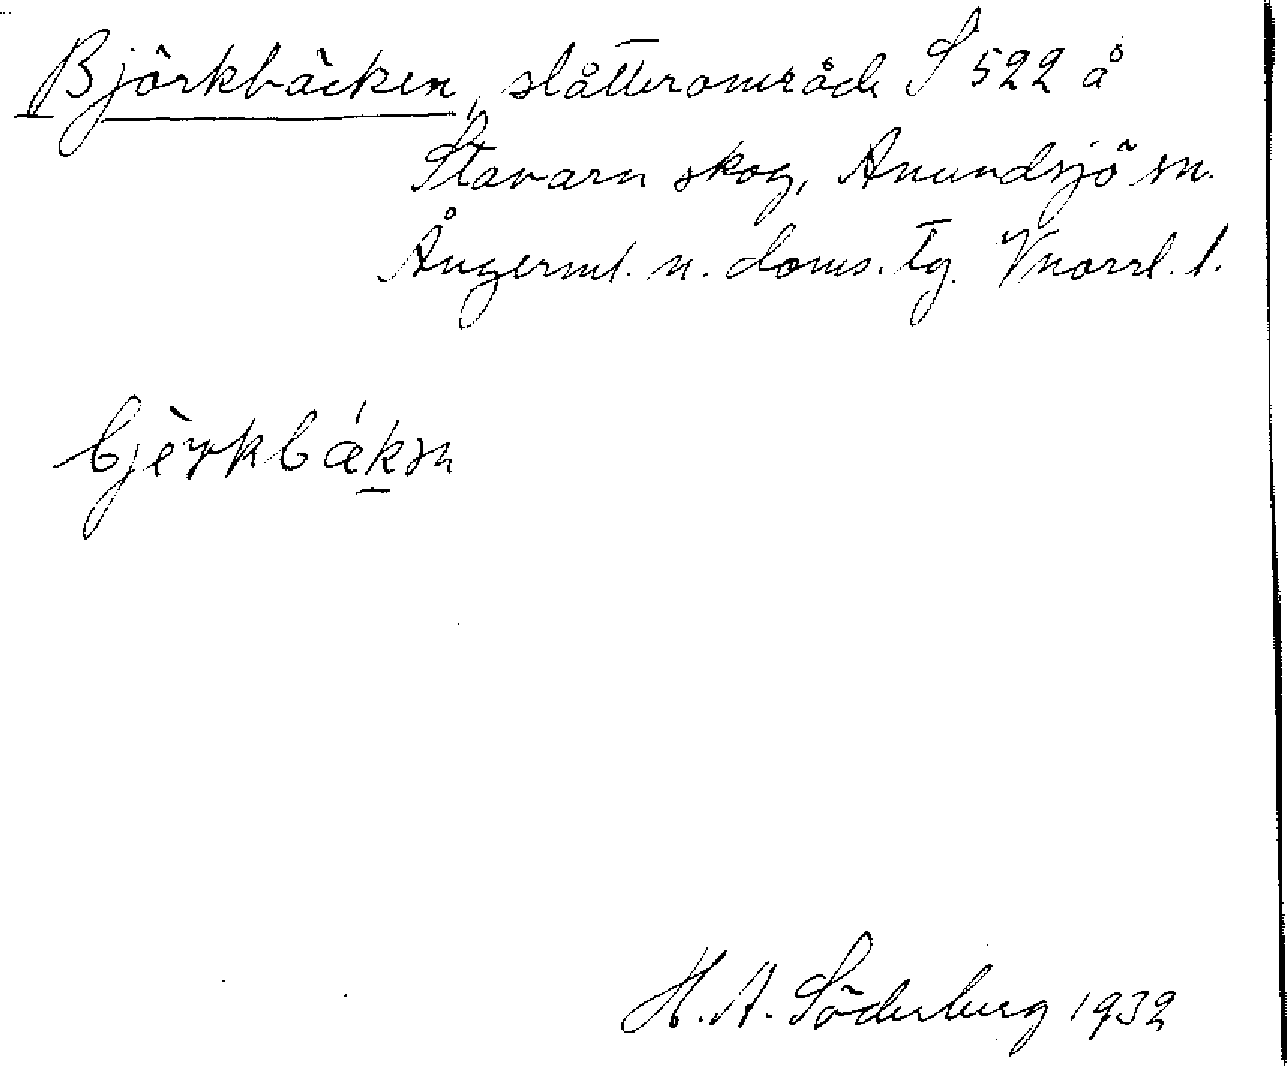 Björkbäcken, slåtterområde S 522 å
Stavarn skog, Anundsjö sn.
Ångerml. n. doms. tg. Vnorrl. l.
bjèrkbǽkən
H. A. Söderberg 1932